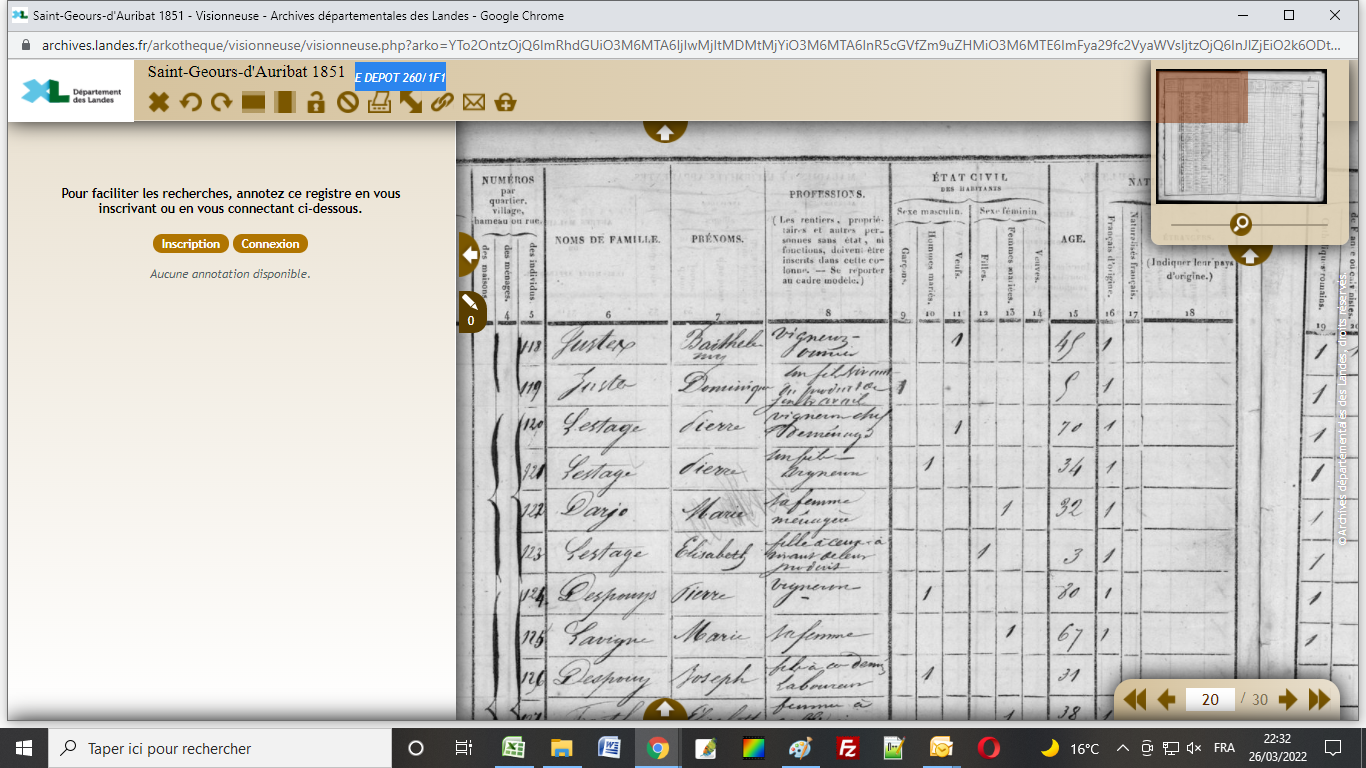 Saint-Geours-d'Auribat 1851 - Visionneuse - Archives départementales des Landes - Google Chrome
archives.landes.fr/arkotheque/visionneuse/visionneuse.php?arko=
Saint-Geours-d'Auribat 1851 E DEPOT 260/1F1
XL Département des Landes
Pour faciliter les recherches, annotez ce registre en vous
inscrivant ou en vous connectant ci-dessous.
Inscription Connexion
Aucune annotation disponible.
0
NUMÉROS
par
quartier,
village,
hameau ou rue.
des maisons.
des ménages.
des individus
NOMS DE FAMILLE.
PRÉNOMS.
PROFESSIONS.
(Les rentiers, proprié-
taires et autres per-
sonnes sans état, ni
fonctions, doivent être
inscrits dans cette co-
lonne. — Se reporter
au cadre modèle.)
ÉTAT CIVIL
DES HABITANTS
Sexe masculin. Sexe féminin
Garçons.
Hommes mariés.
Veufs.
Filles.
Femmes mariées.
Veuves.
AGE.
NAT
Français d'origine.
Naturalisés français.
(Indiquer leur pays
d'origine.)
4 5 6 7 8 9 10 11 12 13 14 15 16 17 18 19
118 Juste Barthele my vigneron 1 45 1 1
119 Juste Dominique 1 5 1 1
120 Lestage Pierre vigneron chef de ménage 1 70 1 1
121 Lestage Pierre son fils vigneron 1 34 1 1
122 Darjo Marie sa femme ménagère 1 32 1 1
123 Lestage Elisabeth fille à ceux-ci vivant de leur produit 1 3 1 1
124 Despouys Pierre vigneron 1 80 1 1
125 Lavigne Marie sa femme 1 67 1 1
126 Despouy Joseph laboureur 1 31 1
femme à
38
©Archives départementales des Landes, droits réservés.
20 / 30
Taper ici pour rechercher
16°C
FRA
22:32
26/03/2022